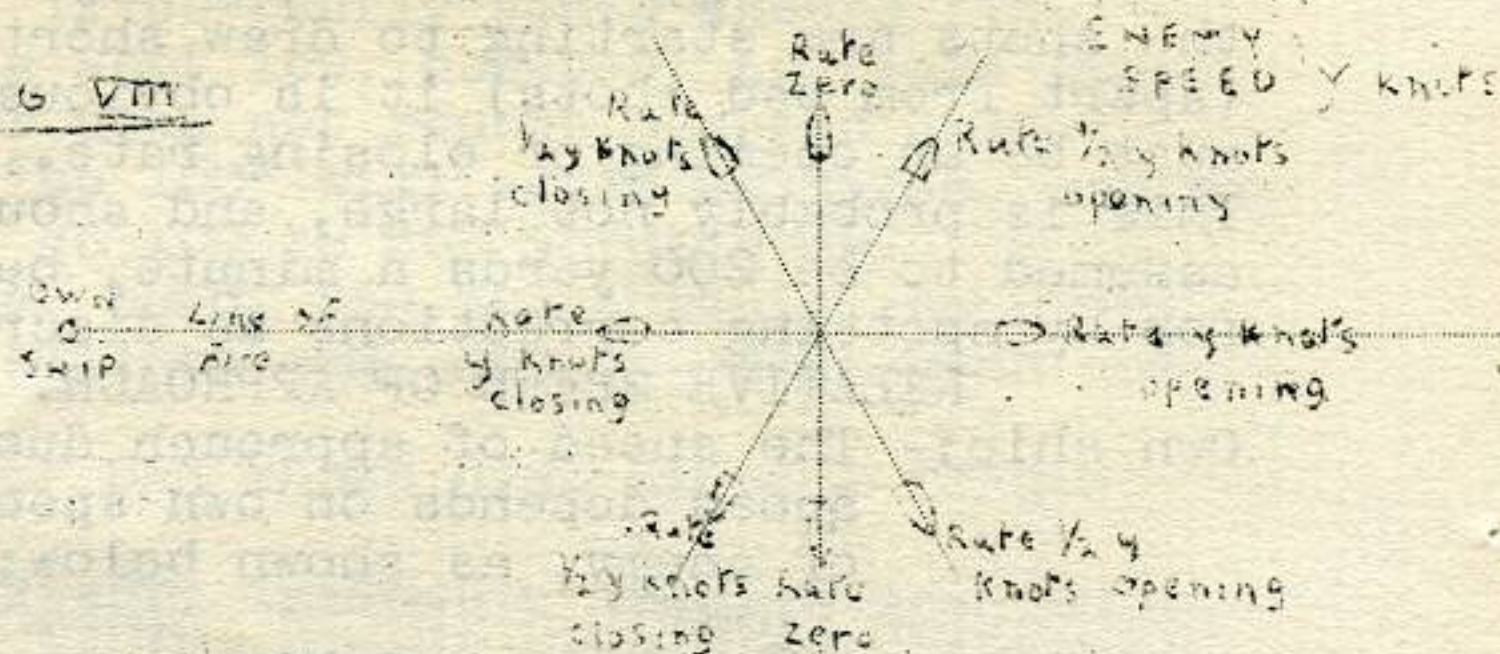 G VIII
Rate
Zero
ENEMY
SPEED Y knots
Rate
1/2 y knots
closing
Rate 1/2 y knots
opening
OWN
SHIP
Line of
Fire
Rate
y knots
closing
Rate y knots
opening
Rate
1/2 y knots
closing
Rate
Zero
Rate 1/2 y
knots opening